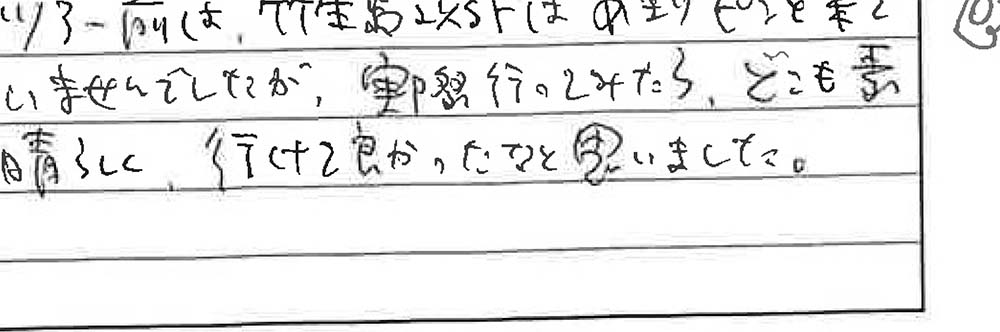 ツアー前は、竹生島以外はあまりピンと来て
いませんでしたが、実際行ってみたら、どこも素
晴らしく、行けて良かったなと思いました。